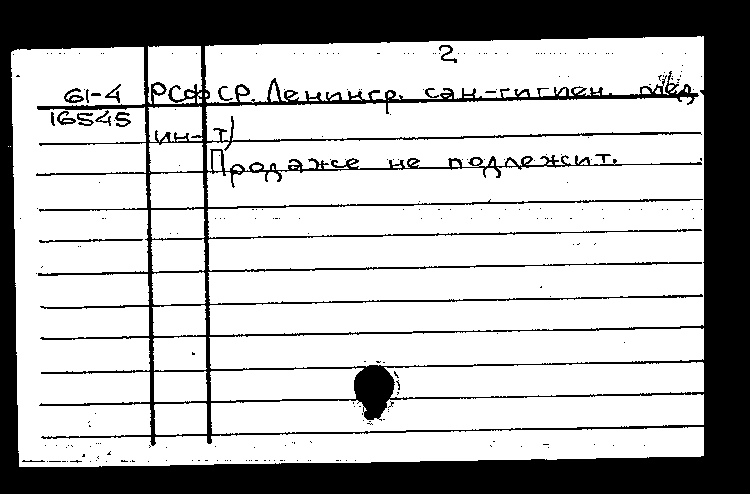 2
61-4 РСФСР. Ленингр. сан.-гигиен. мед.
16545
ин-т)
Продаже не подлежит.